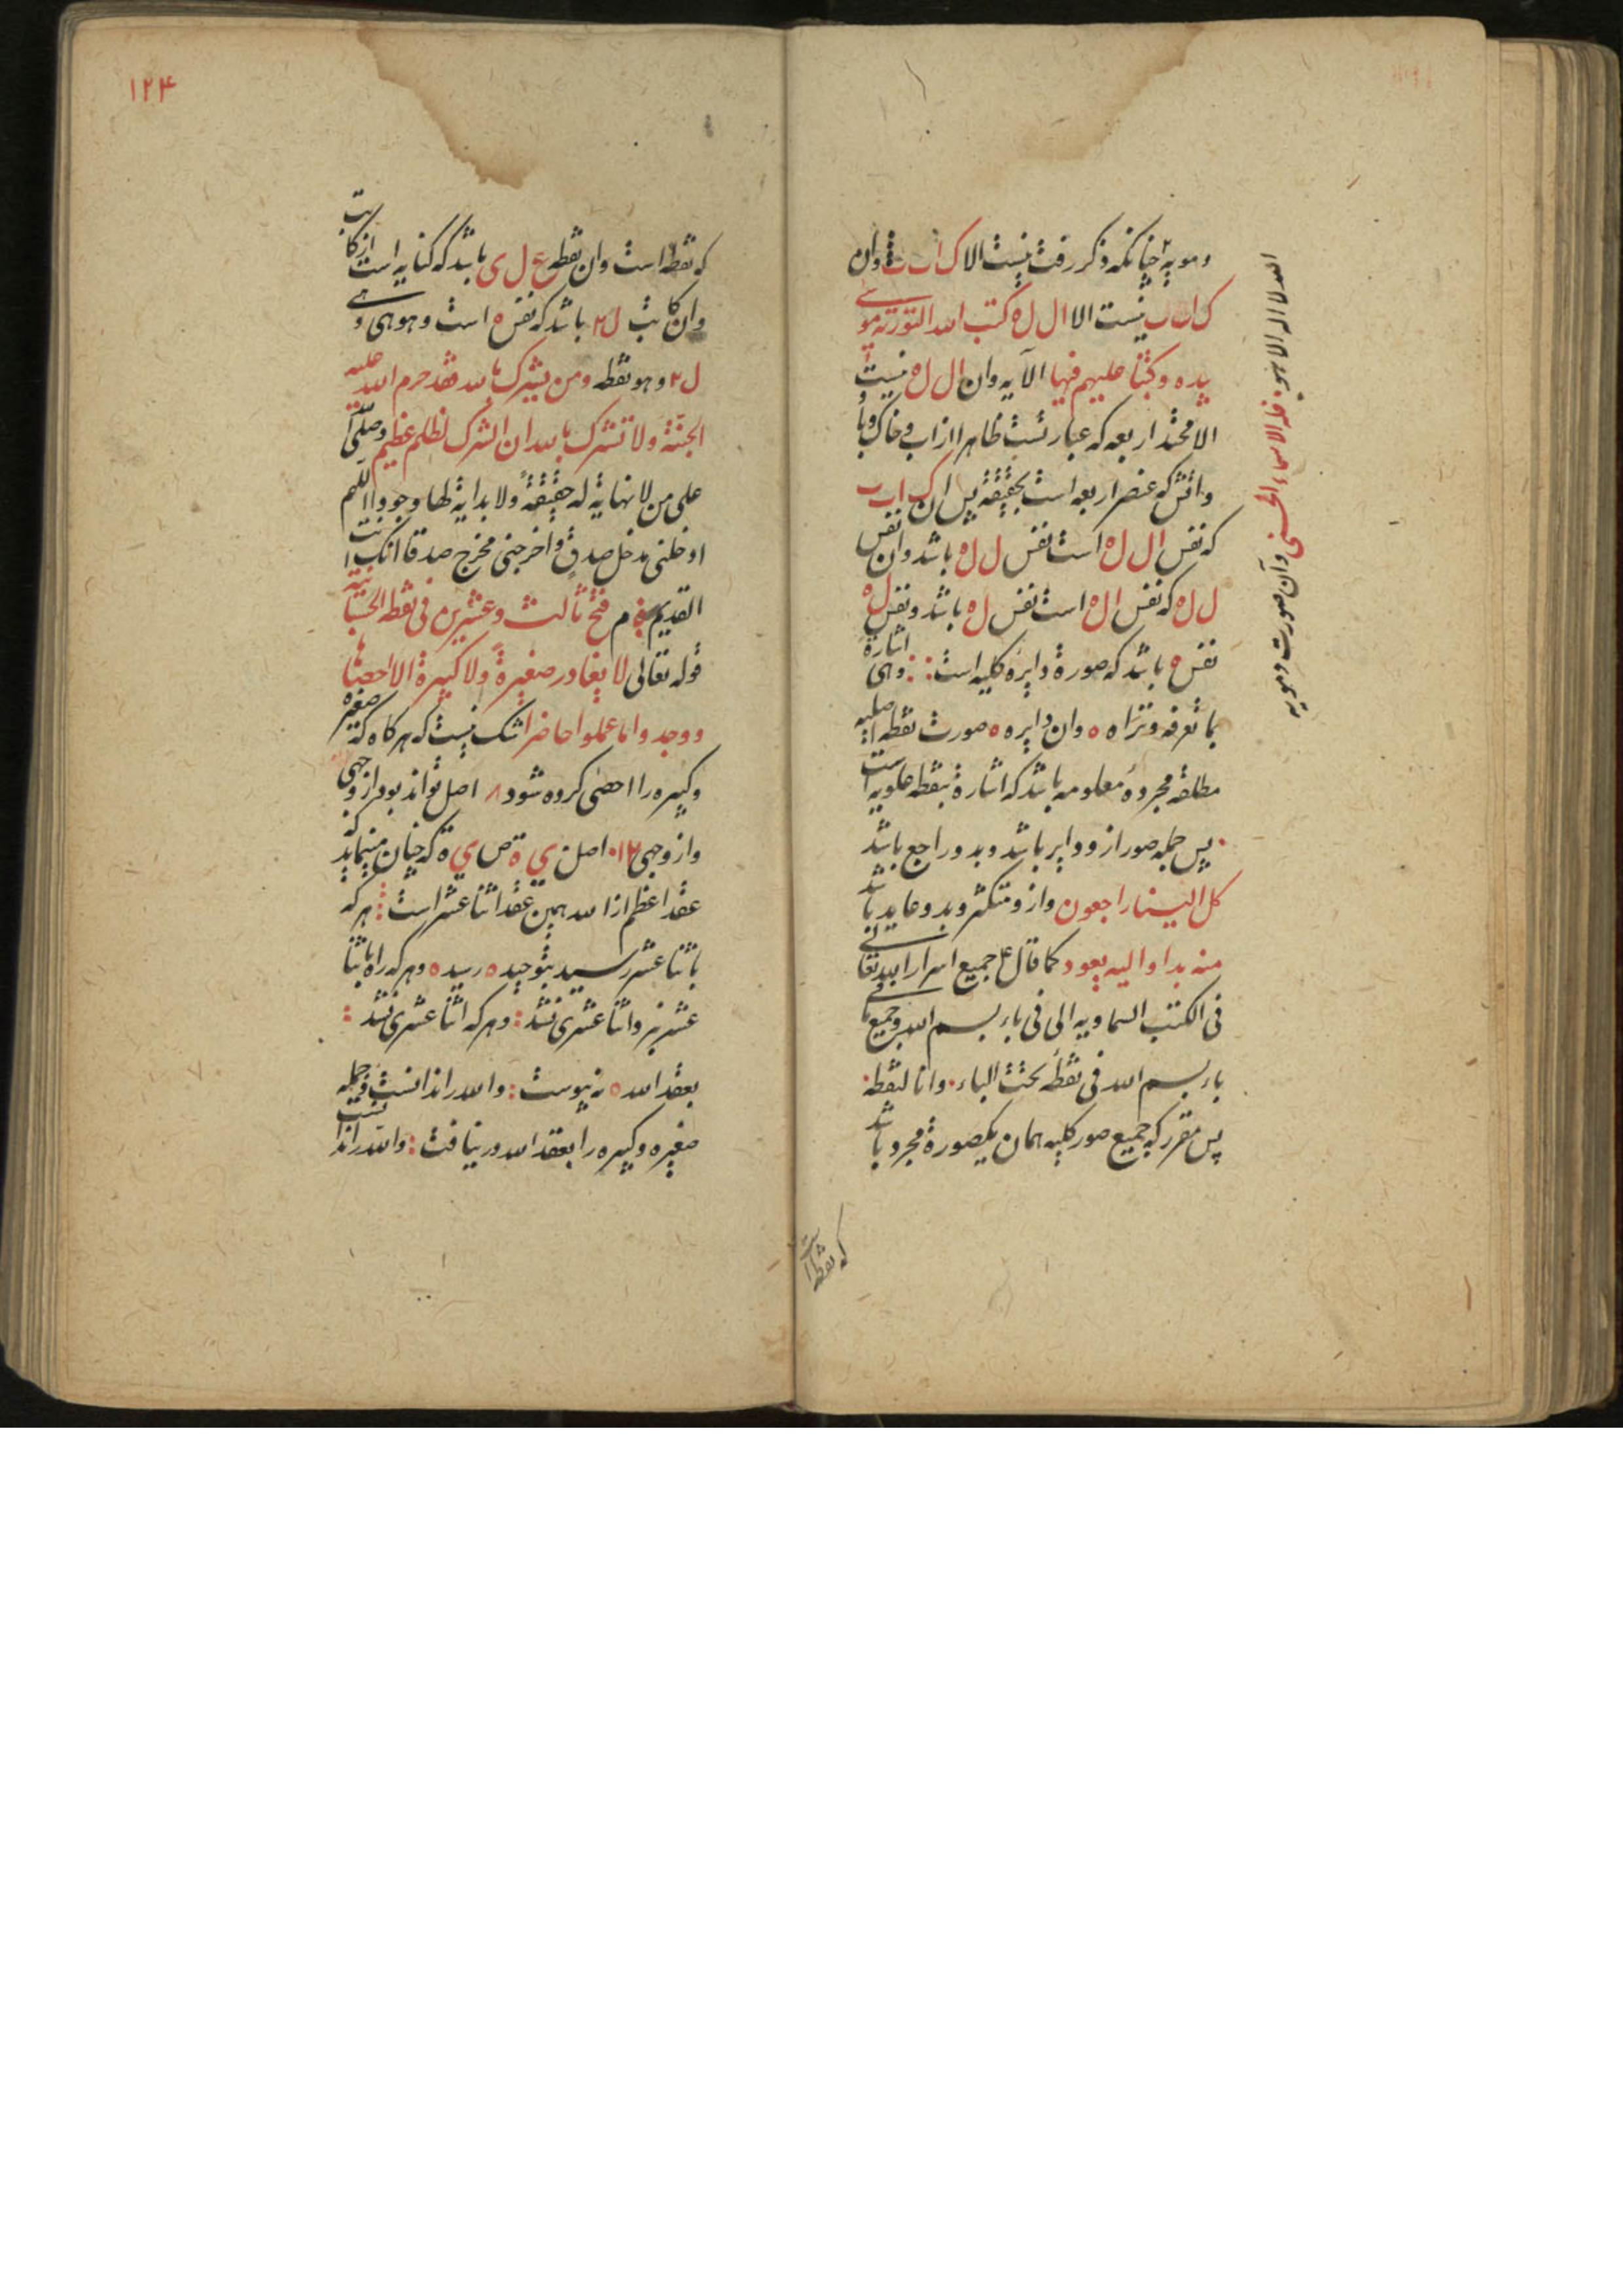 وهویه چنانکه ذکر رفت نیست الا ک ا ت ب وان
ک ا ت ب نیست الا ال ل ه کتب الله التوریة موسی
بیده وکتبنا علیهم فیها الآیه وان ال ل ه نیست
الا اربعه که عبارتست ظاهرا از آب و خاک و باد
واتش که عنصر اربعه است بحقیقة پس ان ک ا ت ب
که نفس ال ل ه است نفس ل ل ه باشد وان نفس
ل ل ه که نفس ال ه است نفس ل ه باشد ونفس ل ه
نفس ه باشد که صورة دایره کلیه است وهی اشارة
بما تعرفه وتراه ه وان دایره ه صورت نقطه اصلیه
مطلقه مجرده معلومه باشد که اشارة بنقطه علویه است
پس جمله صور ازو دایر باشد وبدو راجع باشد
کل الینا راجعون وازو متکثر وبدو عاید باشد
منه بدا والیه یعود کما قال ع جمیع اسرار الله تعالی
فی الکتب السماویه الی فی باء بسم الله وجمیع ما فی
باء بسم الله فی نقطه تحت الباء وانا النقطه
پس مقرر که جمیع صور کلیه همان یکصورة مجرد باشد
که نقطه است
الله لا اله الا هو له الاسماء الحسنی وآن صورت
۱۲۴
که نقطه است وان نقطه ع ل ی باشد که کنایه است از کاتب
وان کاتب ل ۲ باشد که نفس ه است وهو هی وهی
ل ۲ وهو نقطه ومن یشرک بالله فقد حرم الله علیه
الجنة ولا تشرک بالله ان الشرک لظلم عظیم وصلی
علی من لا نهایة له حقیقة ولا بدایة لها وجودا اللهم
ادخلنی مدخل صدق واخرجنی مخرج صدقا انک انت
القدیم فتح ثالث وعشرین فی نقطه الحسابیه
قوله تعالی لا یغادر صغیرة ولا کبیرة الا احصاها
ووجدوا ما عملوا حاضرا شک نیست که هرکاه که صغیره
وکبیره را احصی کرده شود ۸ اصل تواند بود از وجهی
واز وجهی ۱۲ اصل ی ة ص ی ة که چنان مینماید که
عقد اعظم از الله همین عقد اثنا عشر است هر که
باثنا عشر رسید بتوحید ه رسید ه وهر که راه باثنا
عشر نبرد اثنا عشری نشد وهر که اثنا عشری نشد
بعقد الله ه نه پیوست والله را ندانست جمله
صغیره وکبیره را بعقد الله درنیافت والله را ندانست